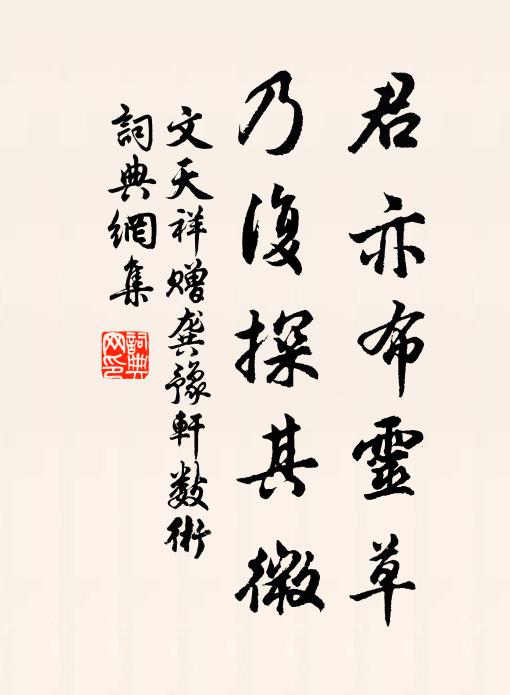 君亦布靈草
乃復探其微
文天祥贈龔豫軒數術
詞典網集
詞典網印